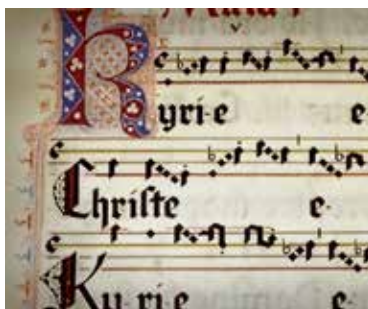 Kyri·e e·
Christe e·
Ky·ri·e e·